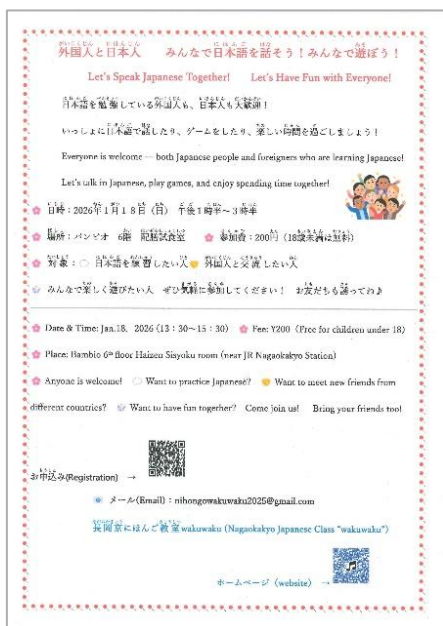 外国人と日本人　みんなで日本語を話そう！みんなで遊ぼう！
Let's Speak Japanese Together!　Let's Have Fun with Everyone!
日本語を勉強している外国人も、日本人も大歓迎！
いっしょに日本語で話したり、ゲームをしたり、楽しい時間を過ごしましょう！
Everyone is welcome — both Japanese people and foreigners who are learning Japanese!
Let's talk in Japanese, play games, and enjoy spending time together!
日時：2026年1月18日（日）　午後1時半～3時半
場所：バンビオ　6階　配膳試食室　参加費：200円（18歳未満は無料）
対象：　日本語を練習したい人　外国人と交流したい人
みんなで楽しく遊びたい人　ぜひ気軽に参加してください！　お友だちも誘ってね♪
Date & Time: Jan.18, 2026 (13：30～15：30)　Fee: Y200 (Free for children under 18)
Place: Bambio 6th floor Haizen Sisyoku room (near JR Nagaokakyo Station)
Anyone is welcome!　Want to practice Japanese?　Want to meet new friends from
different countries?　Want to have fun together?　Come join us!　Bring your friends too!
お申込み(Registration)　→
メール(Email)：nihongowakuwaku2025@gmail.com
長岡京にほんご教室 wakuwaku (Nagaokakyo Japanese Class "wakuwaku")
ホームページ（website）　→